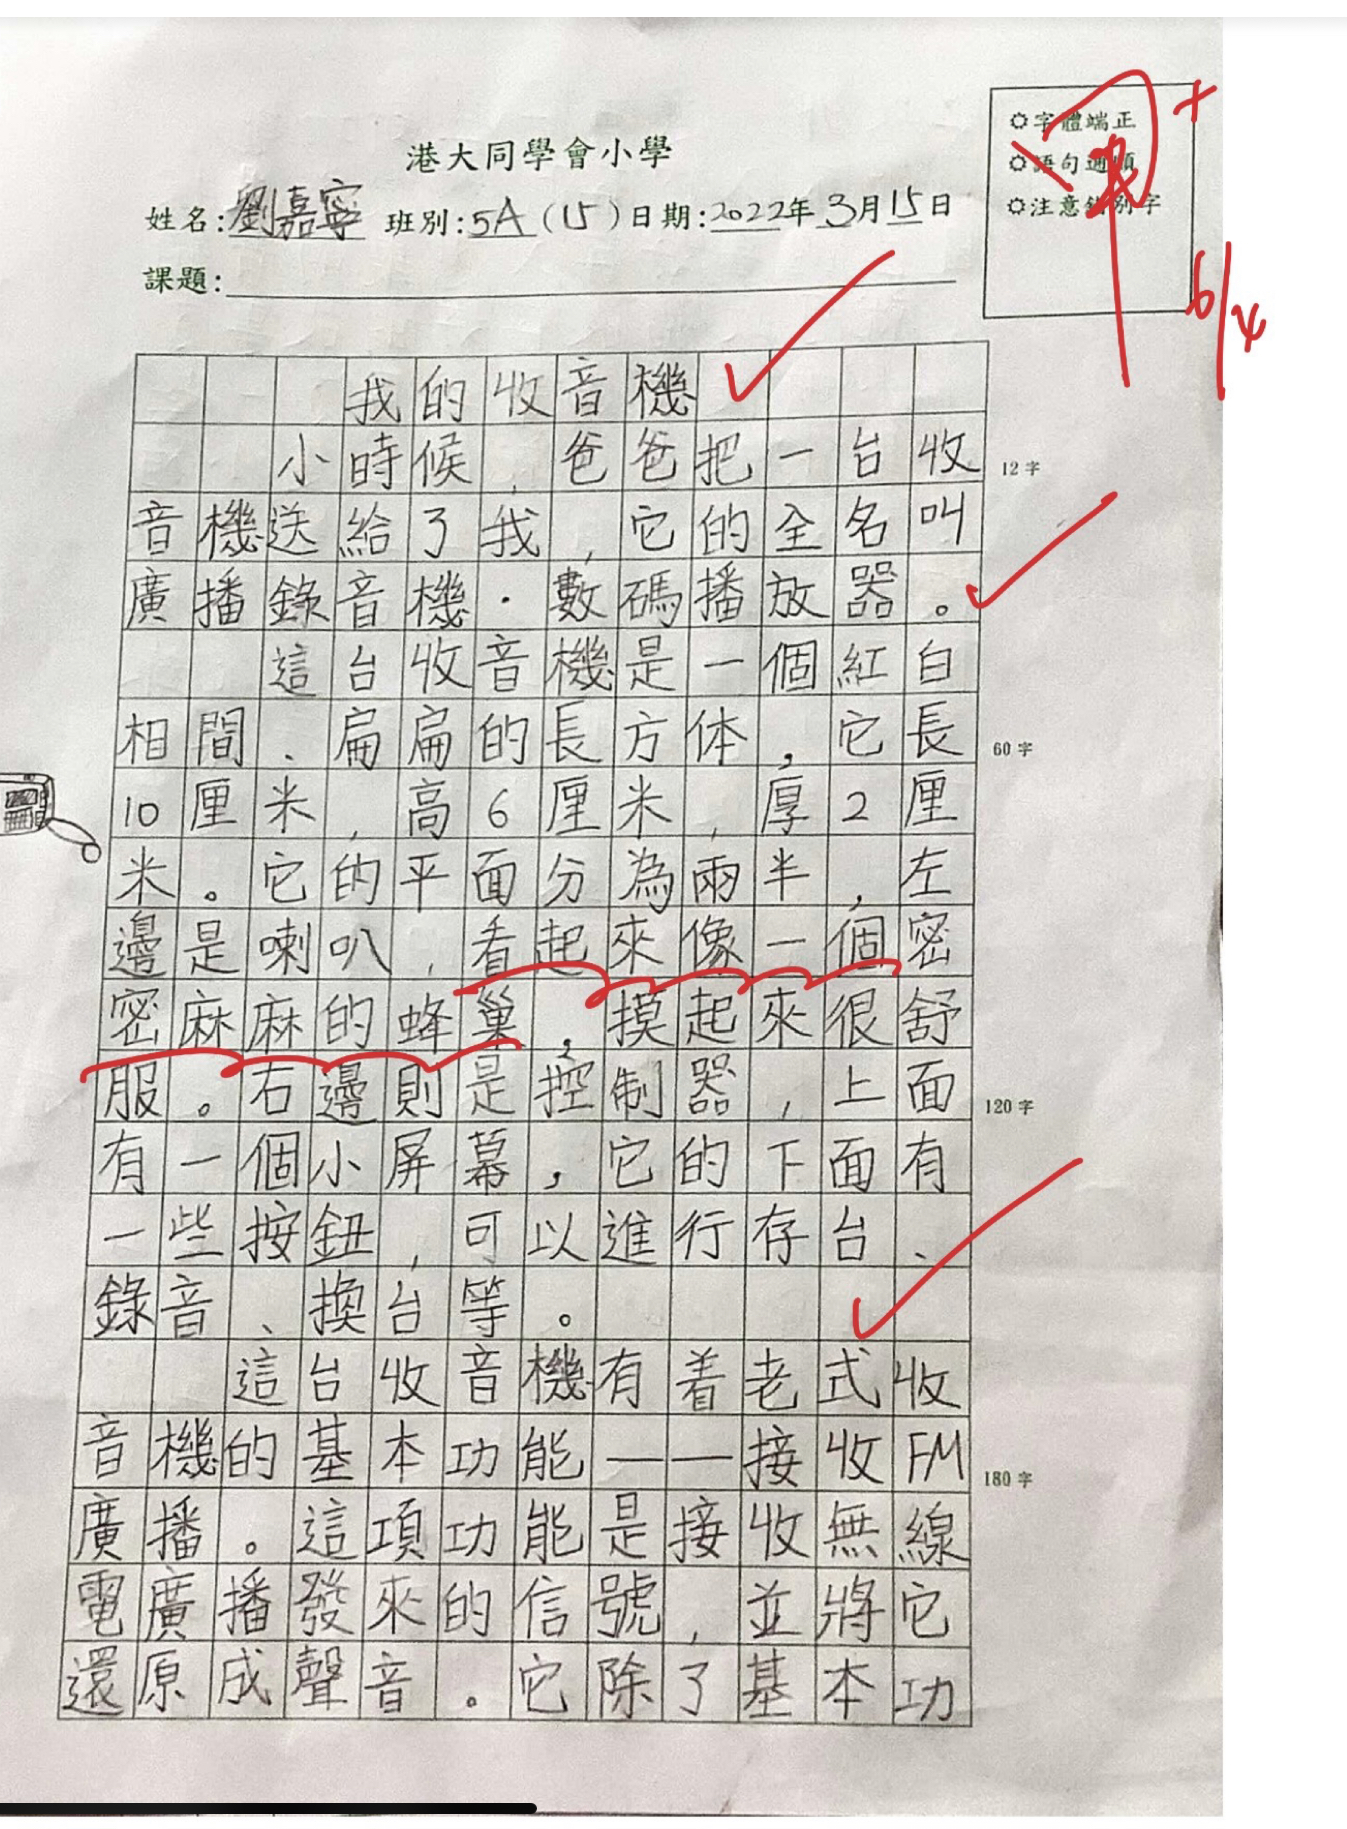 港大同學會小學
姓名:劉嘉寧 班別:5A(15)日期:2022年3月15日
課題:
字體端正
語句通順
注意錯別字
甲+
6/4
我的收音機
小時候,爸爸把一台收
12字
音機送給了我,它的全名叫
廣播錄音機·數碼播放器。
這台收音機是一個紅白
相間、扁扁的長方体,它長
60字
10厘米,高6厘米,厚2厘
米。它的平面分為兩半,左
邊是喇叭,看起來像一個密
密麻麻的蜂巢,摸起來很舒
服。右邊則是控制器,上面
120字
有一個小屏幕,它的下面有
一些按鈕,可以進行存台、
錄音、換台等。
這台收音機有着老式收
音機的基本功能——接收FM
180字
廣播。這項功能是接收無線
電廣播發來的信號,並將它
還原成聲音。它除了基本功